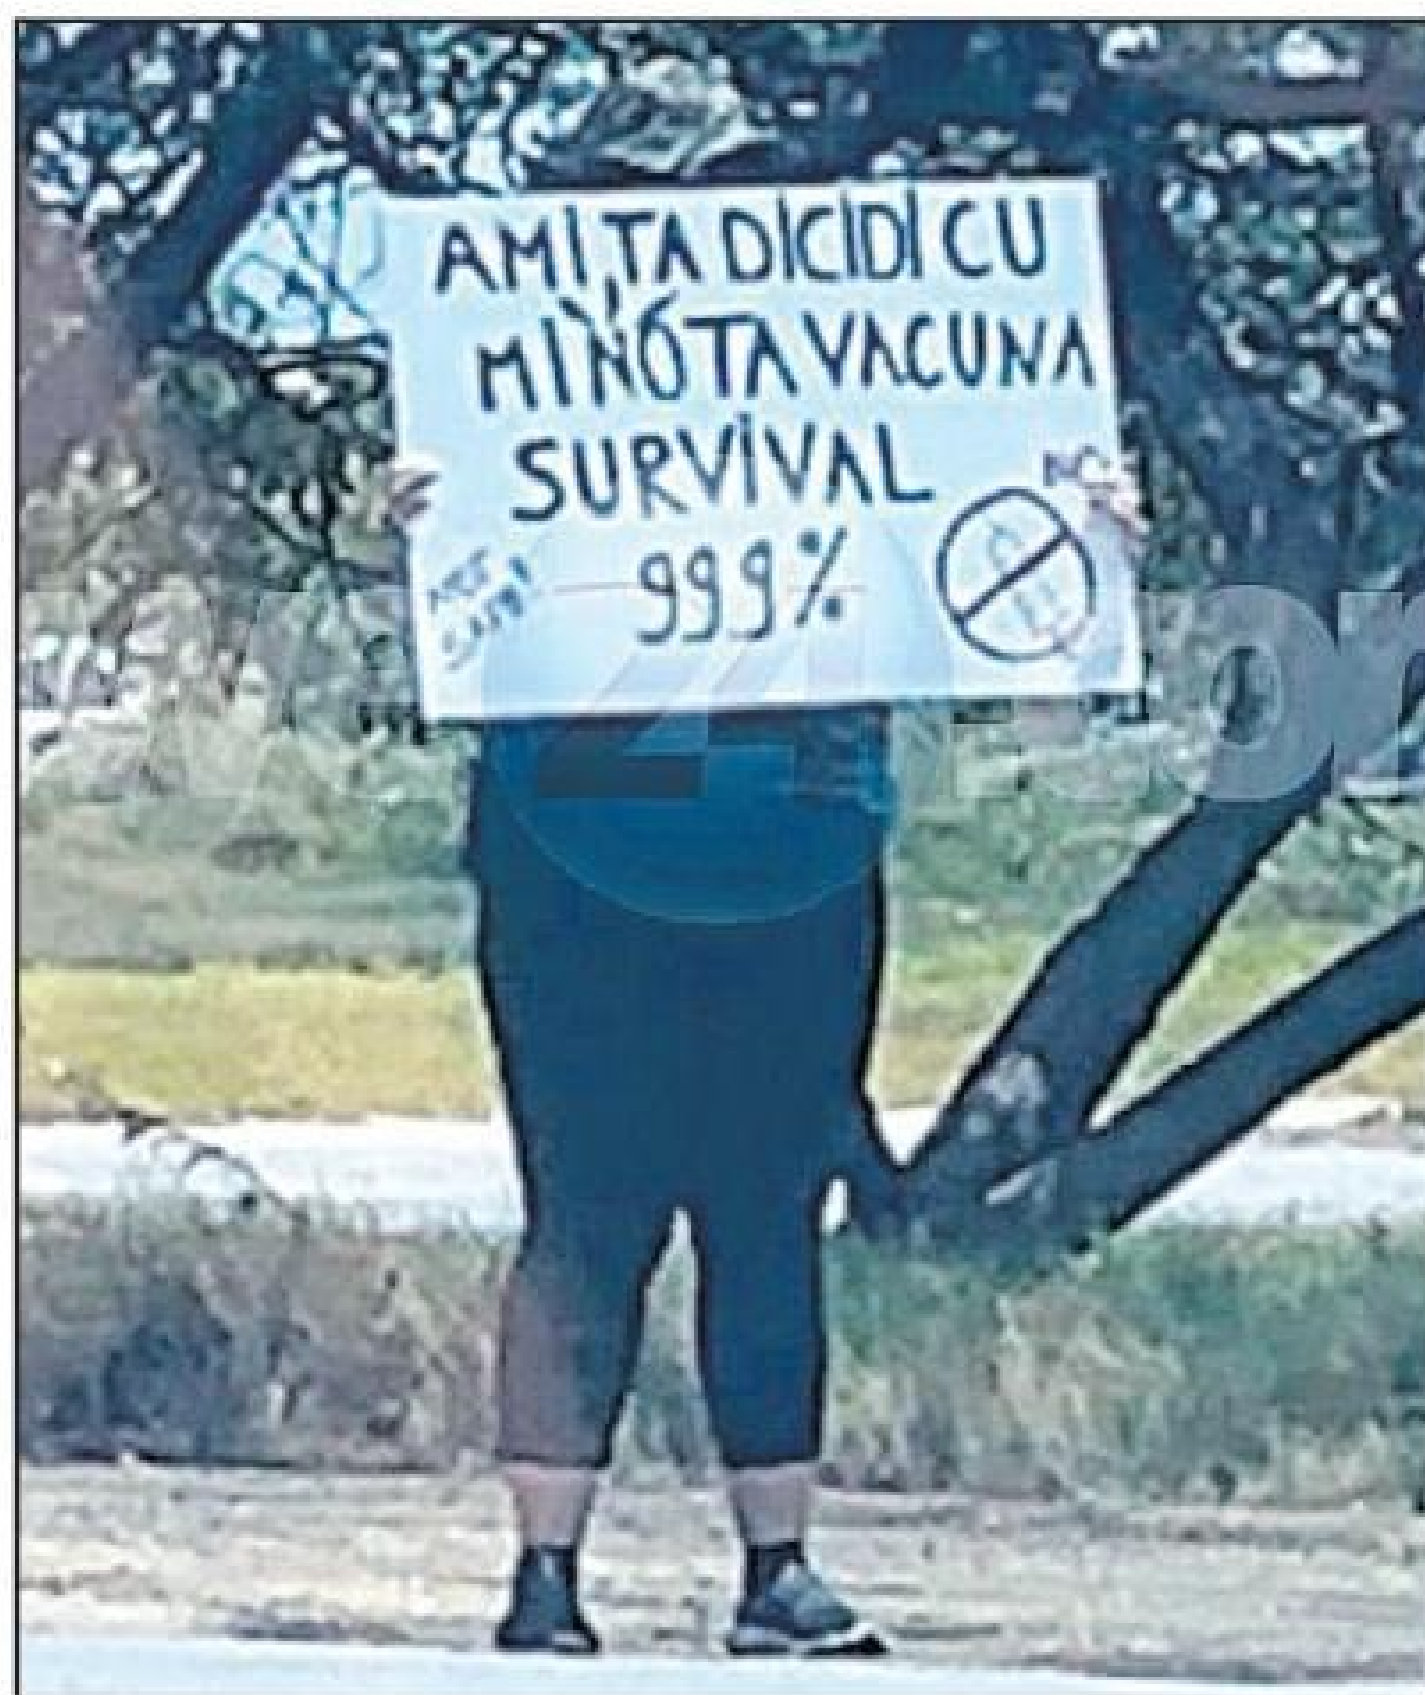 AMI TA DICIDI CU
MI NO TA VACUNA
SURVIVAL
99,9%
NOT
SAFE!
NO